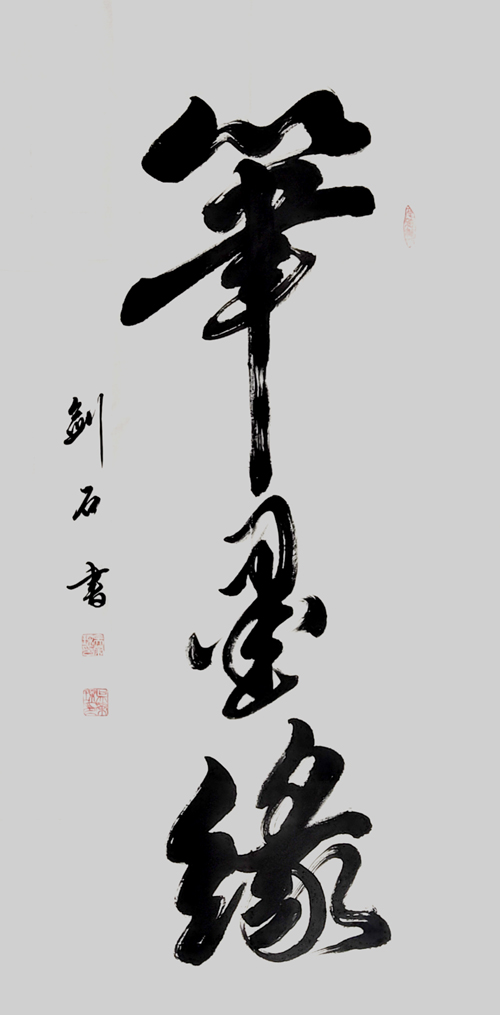 筆墨緣
劍石書